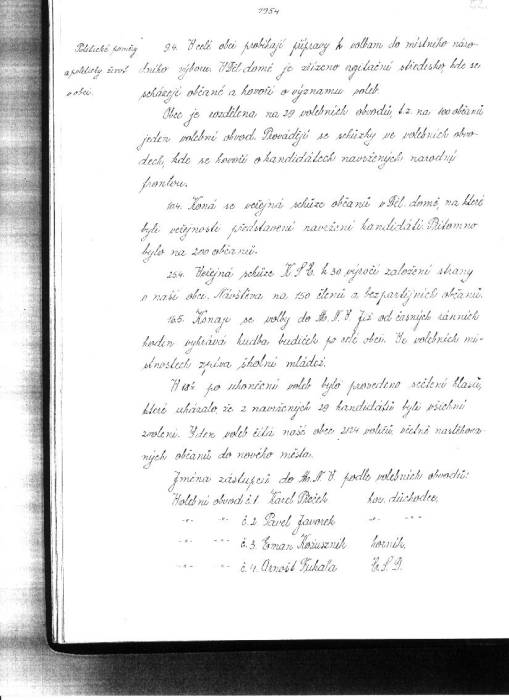 1954
Politické poměry
a politický život
v obci.
9.4. V celé obci probíhají přípravy k volbám do místního náro-
dního výboru. V Děl. domě je zřízeno agitační středisko, kde se
scházejí občané a hovoří o významu voleb.
Obec je rozdělena na 29 volebních obvodů, t.z. na 100 občanů
jeden volební obvod. Provádějí se schůzky ve volebních obvo-
dech, kde se hovoří o kandidátech navržených národní
frontou.
10.4. Koná se veřejná schůze občanů v Děl. domě, na které
byli veřejnosti představeni navržení kandidáti. Přítomno
bylo na 200 občanů.
25.4. Veřejná schůze K.S.Č. k 30 výročí založení strany
v naší obci. Návštěva na 150 členů a bezpartijních občanů.
16.5. Konají se volby do M.N.V. Již od časných ranních
hodin vyhrává hudba budíček po celé obci. Ve volebních mí-
stnostech zpívá školní mládež.
V 18h po ukončení voleb bylo provedeno sčítání hlasů,
které ukázalo, že z navržených 29 kandidátů byli všichni
zvoleni. V den voleb čítá naše obec 2124 voličů, včetně nastěhova-
ných občanů do nového města.
Jména zástupců do M.N.V. podle volebních obvodů:
Volební obvod č.1 Karel Ploček hor. důchodce,
-"- -"- č.2. Pavel Javorek -"- -"-
-"- -"- č.3. Eman Kożusznik horník,
-"- -"- č.4. Arnošt Kukała Č.S.D.